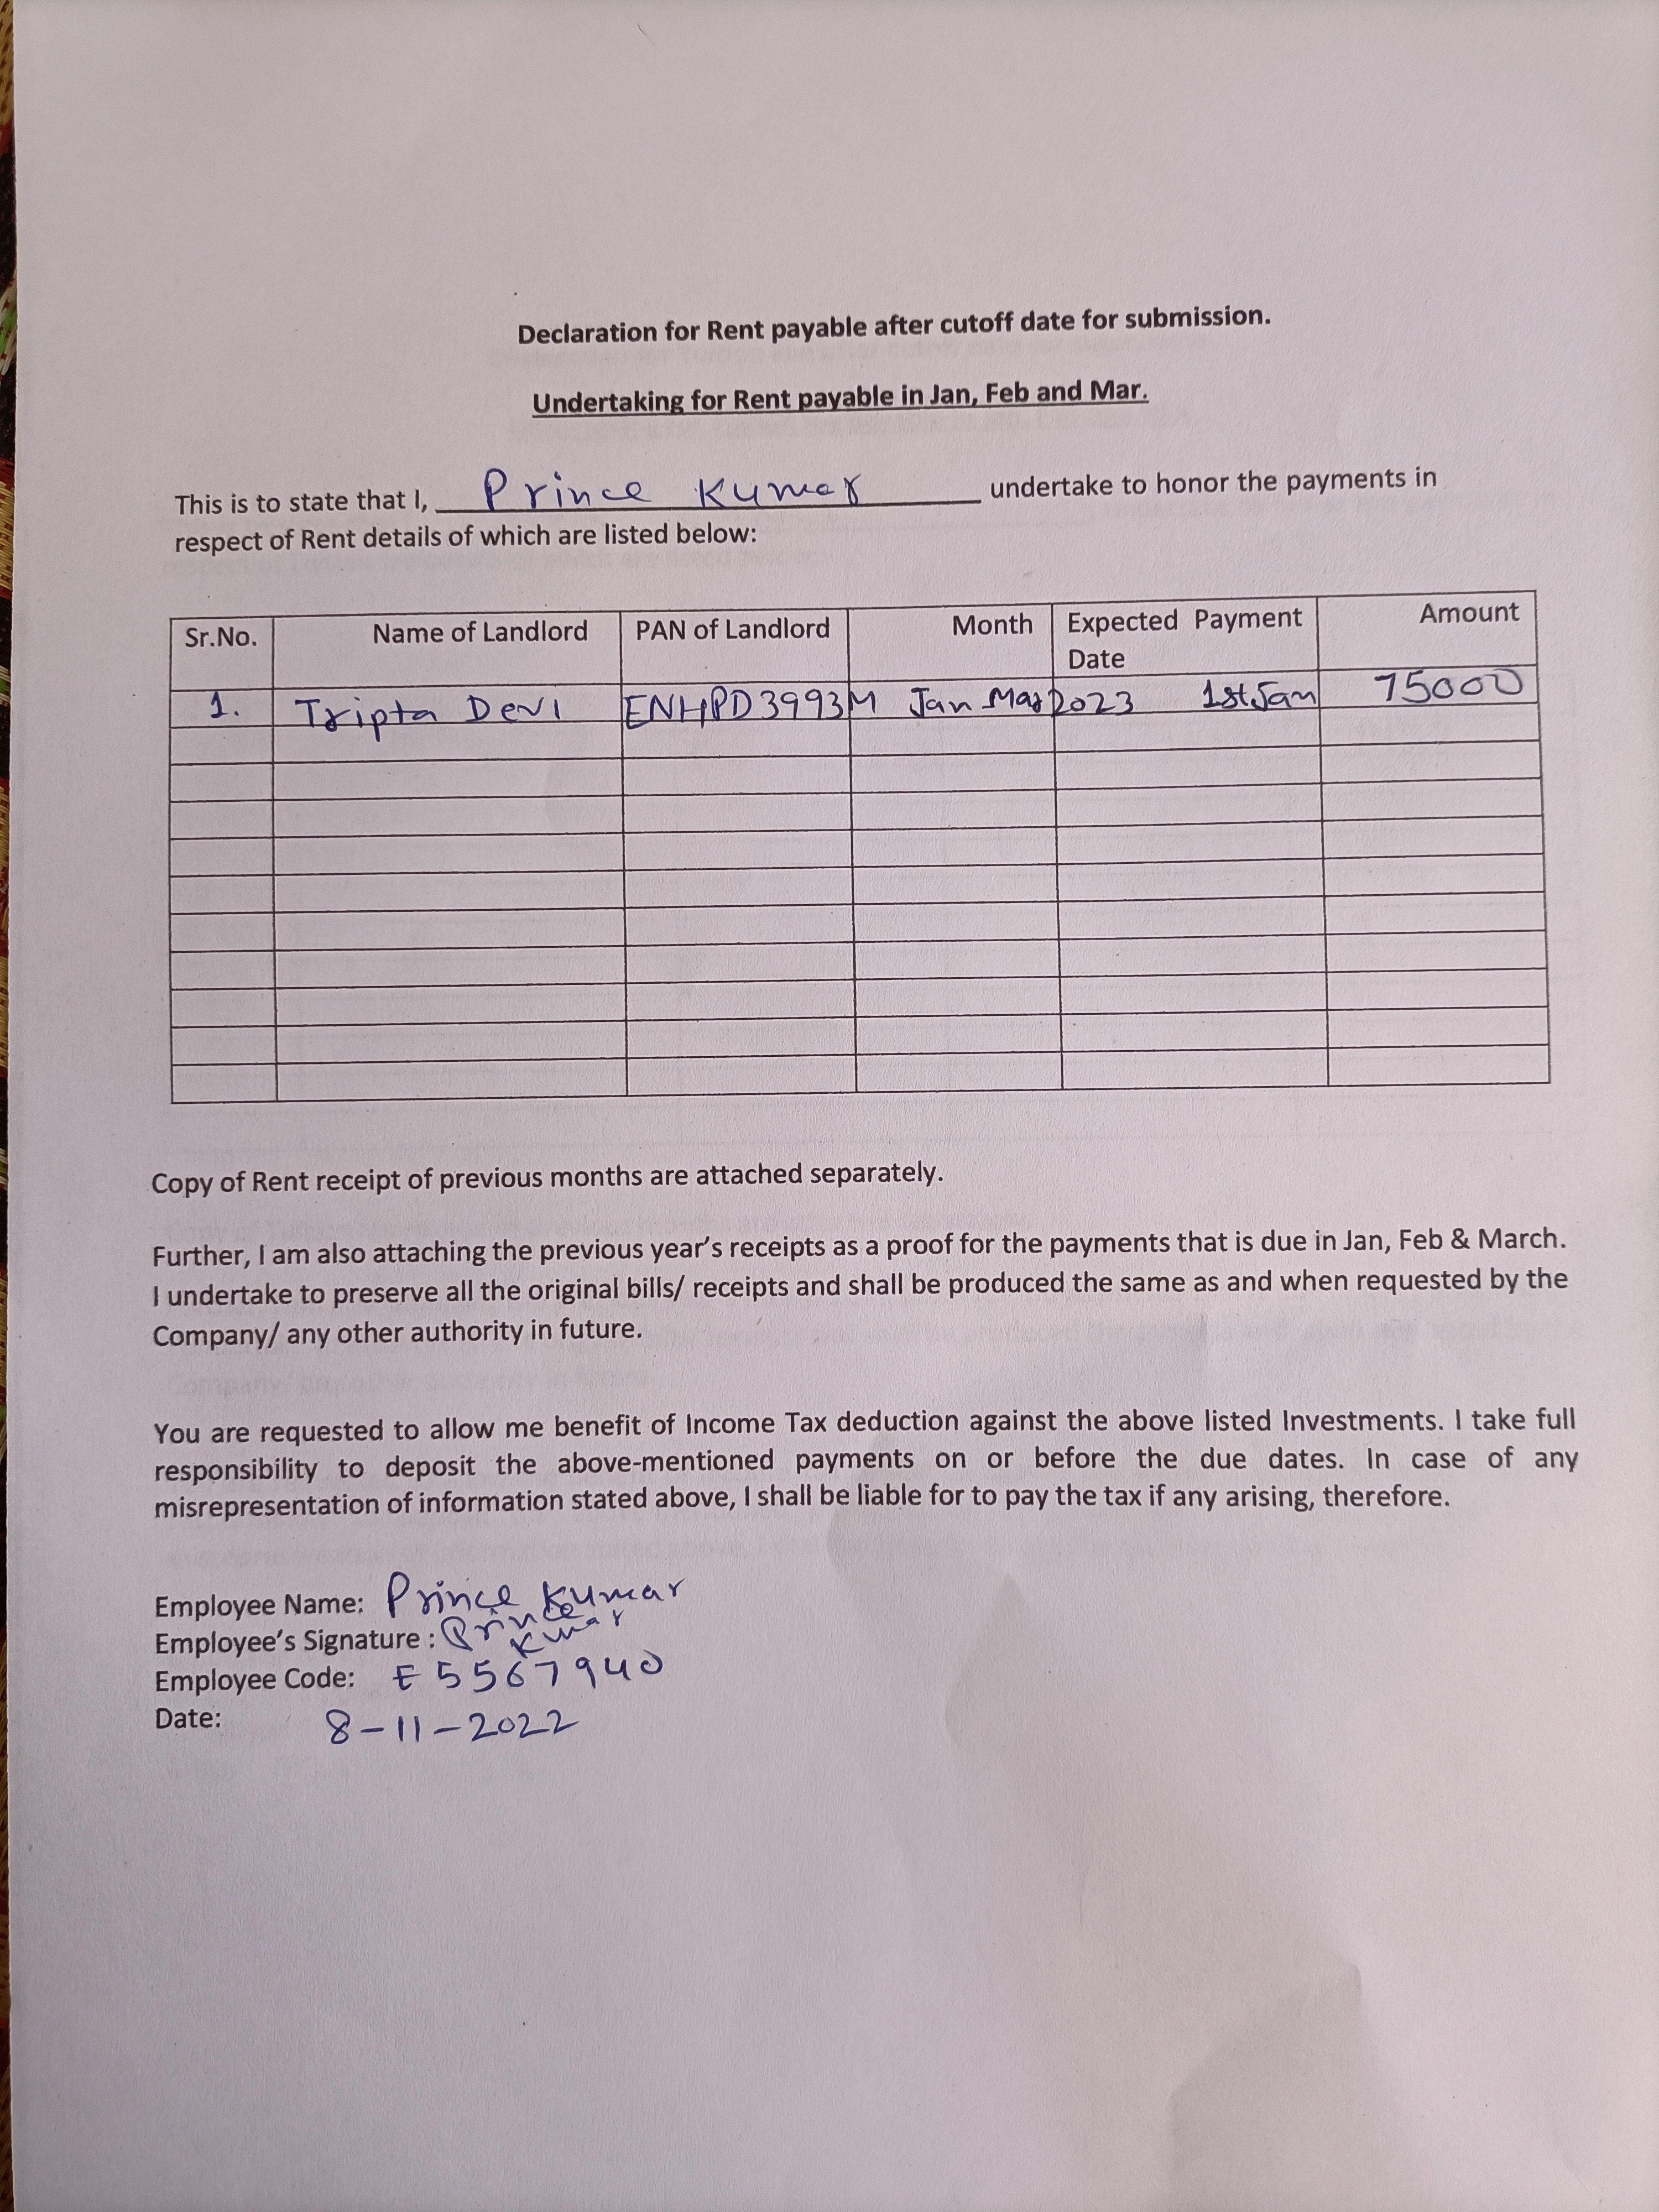 Declaration for Rent payable after cutoff date for submission.
Undertaking for Rent payable in Jan, Feb and Mar.
This is to state that I, Prince Kumar undertake to honor the payments in
respect of Rent details of which are listed below:
Sr.No. Name of Landlord PAN of Landlord Month Expected Payment Date Amount
1. Tripta Devi ENHPD3993M Jan Mar 2023 1st Jan 75000
Copy of Rent receipt of previous months are attached separately.
Further, I am also attaching the previous year's receipts as a proof for the payments that is due in Jan, Feb & March.
I undertake to preserve all the original bills/ receipts and shall be produced the same as and when requested by the
Company/ any other authority in future.
You are requested to allow me benefit of Income Tax deduction against the above listed Investments. I take full
responsibility to deposit the above-mentioned payments on or before the due dates. In case of any
misrepresentation of information stated above, I shall be liable for to pay the tax if any arising, therefore.
Employee Name: Prince Kumar
Employee's Signature : Prince Kumar
Employee Code: E5567940
Date: 8-11-2022